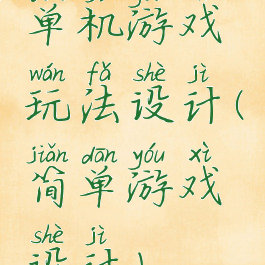 单机游戏
wán fǎ shè jì
玩法设计(
jiǎn dān yóu xì
简单游戏
shè jì
设计)